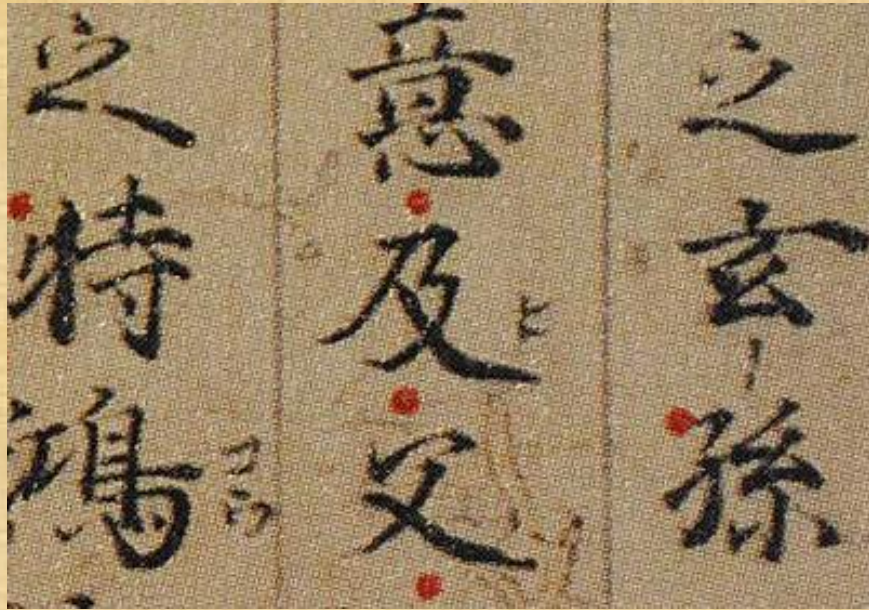 之玄孫
意及父
之特鴻